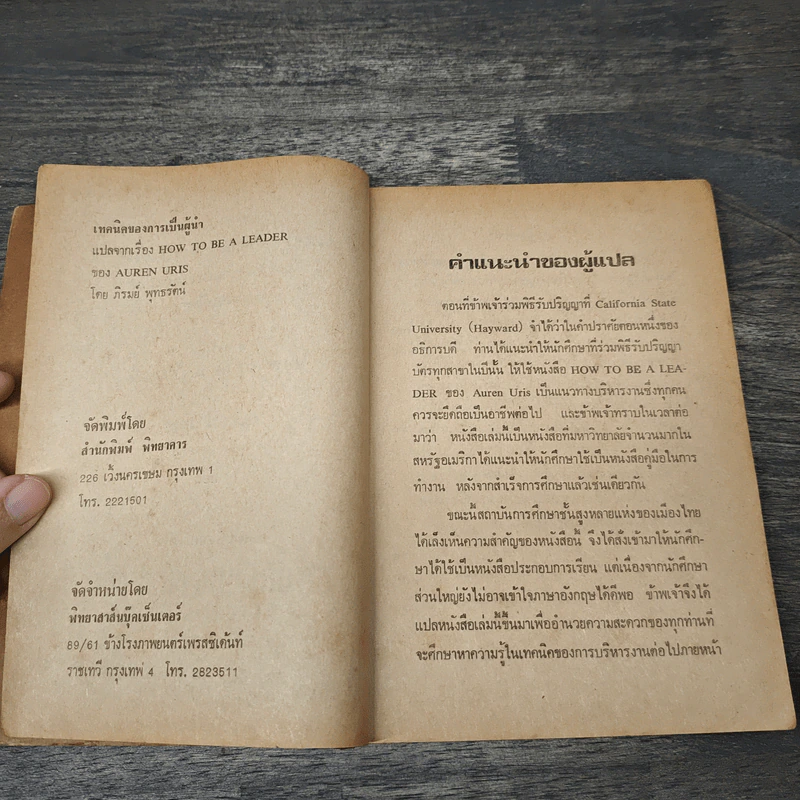 เทคนิคของการเป็นผู้นำ
แปลจากเรื่อง HOW TO BE A LEADER
ของ AUREN URIS
โดย ภิรมย์ พุทธรัตน์
จัดพิมพ์โดย
สำนักพิมพ์ พิทยาคาร
226 เวิ้งนครเขษม กรุงเทพ 1
โทร. 2221501
จัดจำหน่ายโดย
พิทยาสาส์นบุ๊คเซ็นเตอร์
89/61 ข้างโรงภาพยนตร์เพรสซิเด้นท์
ราชเทวี กรุงเทพ 4 โทร. 2823511
คำแนะนำของผู้แปล
ตอนที่ข้าพเจ้าร่วมพิธีรับปริญญาที่ California State
University (Hayward) จำได้ว่าในคำปราศัยตอนหนึ่งของ
อธิการบดี ท่านได้แนะนำให้นักศึกษาที่ร่วมพิธีรับปริญญา
บัตรทุกสาขาในปีนั้น ให้ใช้หนังสือ HOW TO BE A LEA-
DER ของ Auren Uris เป็นแนวทางบริหารงานซึ่งทุกคน
ควรจะยึดถือเป็นอาชีพต่อไป และข้าพเจ้าทราบในเวลาต่อ
มาว่า หนังสือเล่มนี้เป็นหนังสือที่มหาวิทยาลัยจำนวนมากใน
สหรัฐอเมริกาได้แนะนำให้นักศึกษาใช้เป็นหนังสือคู่มือในการ
ทำงาน หลังจากสำเร็จการศึกษาแล้วเช่นเดียวกัน
ขณะนี้สถาบันการศึกษาชั้นสูงหลายแห่งของเมืองไทย
ได้เล็งเห็นความสำคัญของหนังสือนี้ จึงได้สั่งเข้ามาให้นักศึก-
ษาได้ใช้เป็นหนังสือประกอบการเรียน แต่เนื่องจากนักศึกษา
ส่วนใหญ่ยังไม่อาจเข้าใจภาษาอังกฤษได้ดีพอ ข้าพเจ้าจึงได้
แปลหนังสือเล่มนี้ขึ้นมาเพื่ออำนวยความสะดวกของทุกท่านที่
จะศึกษาหาความรู้ในเทคนิคของการบริหารงานต่อไปภายหน้า